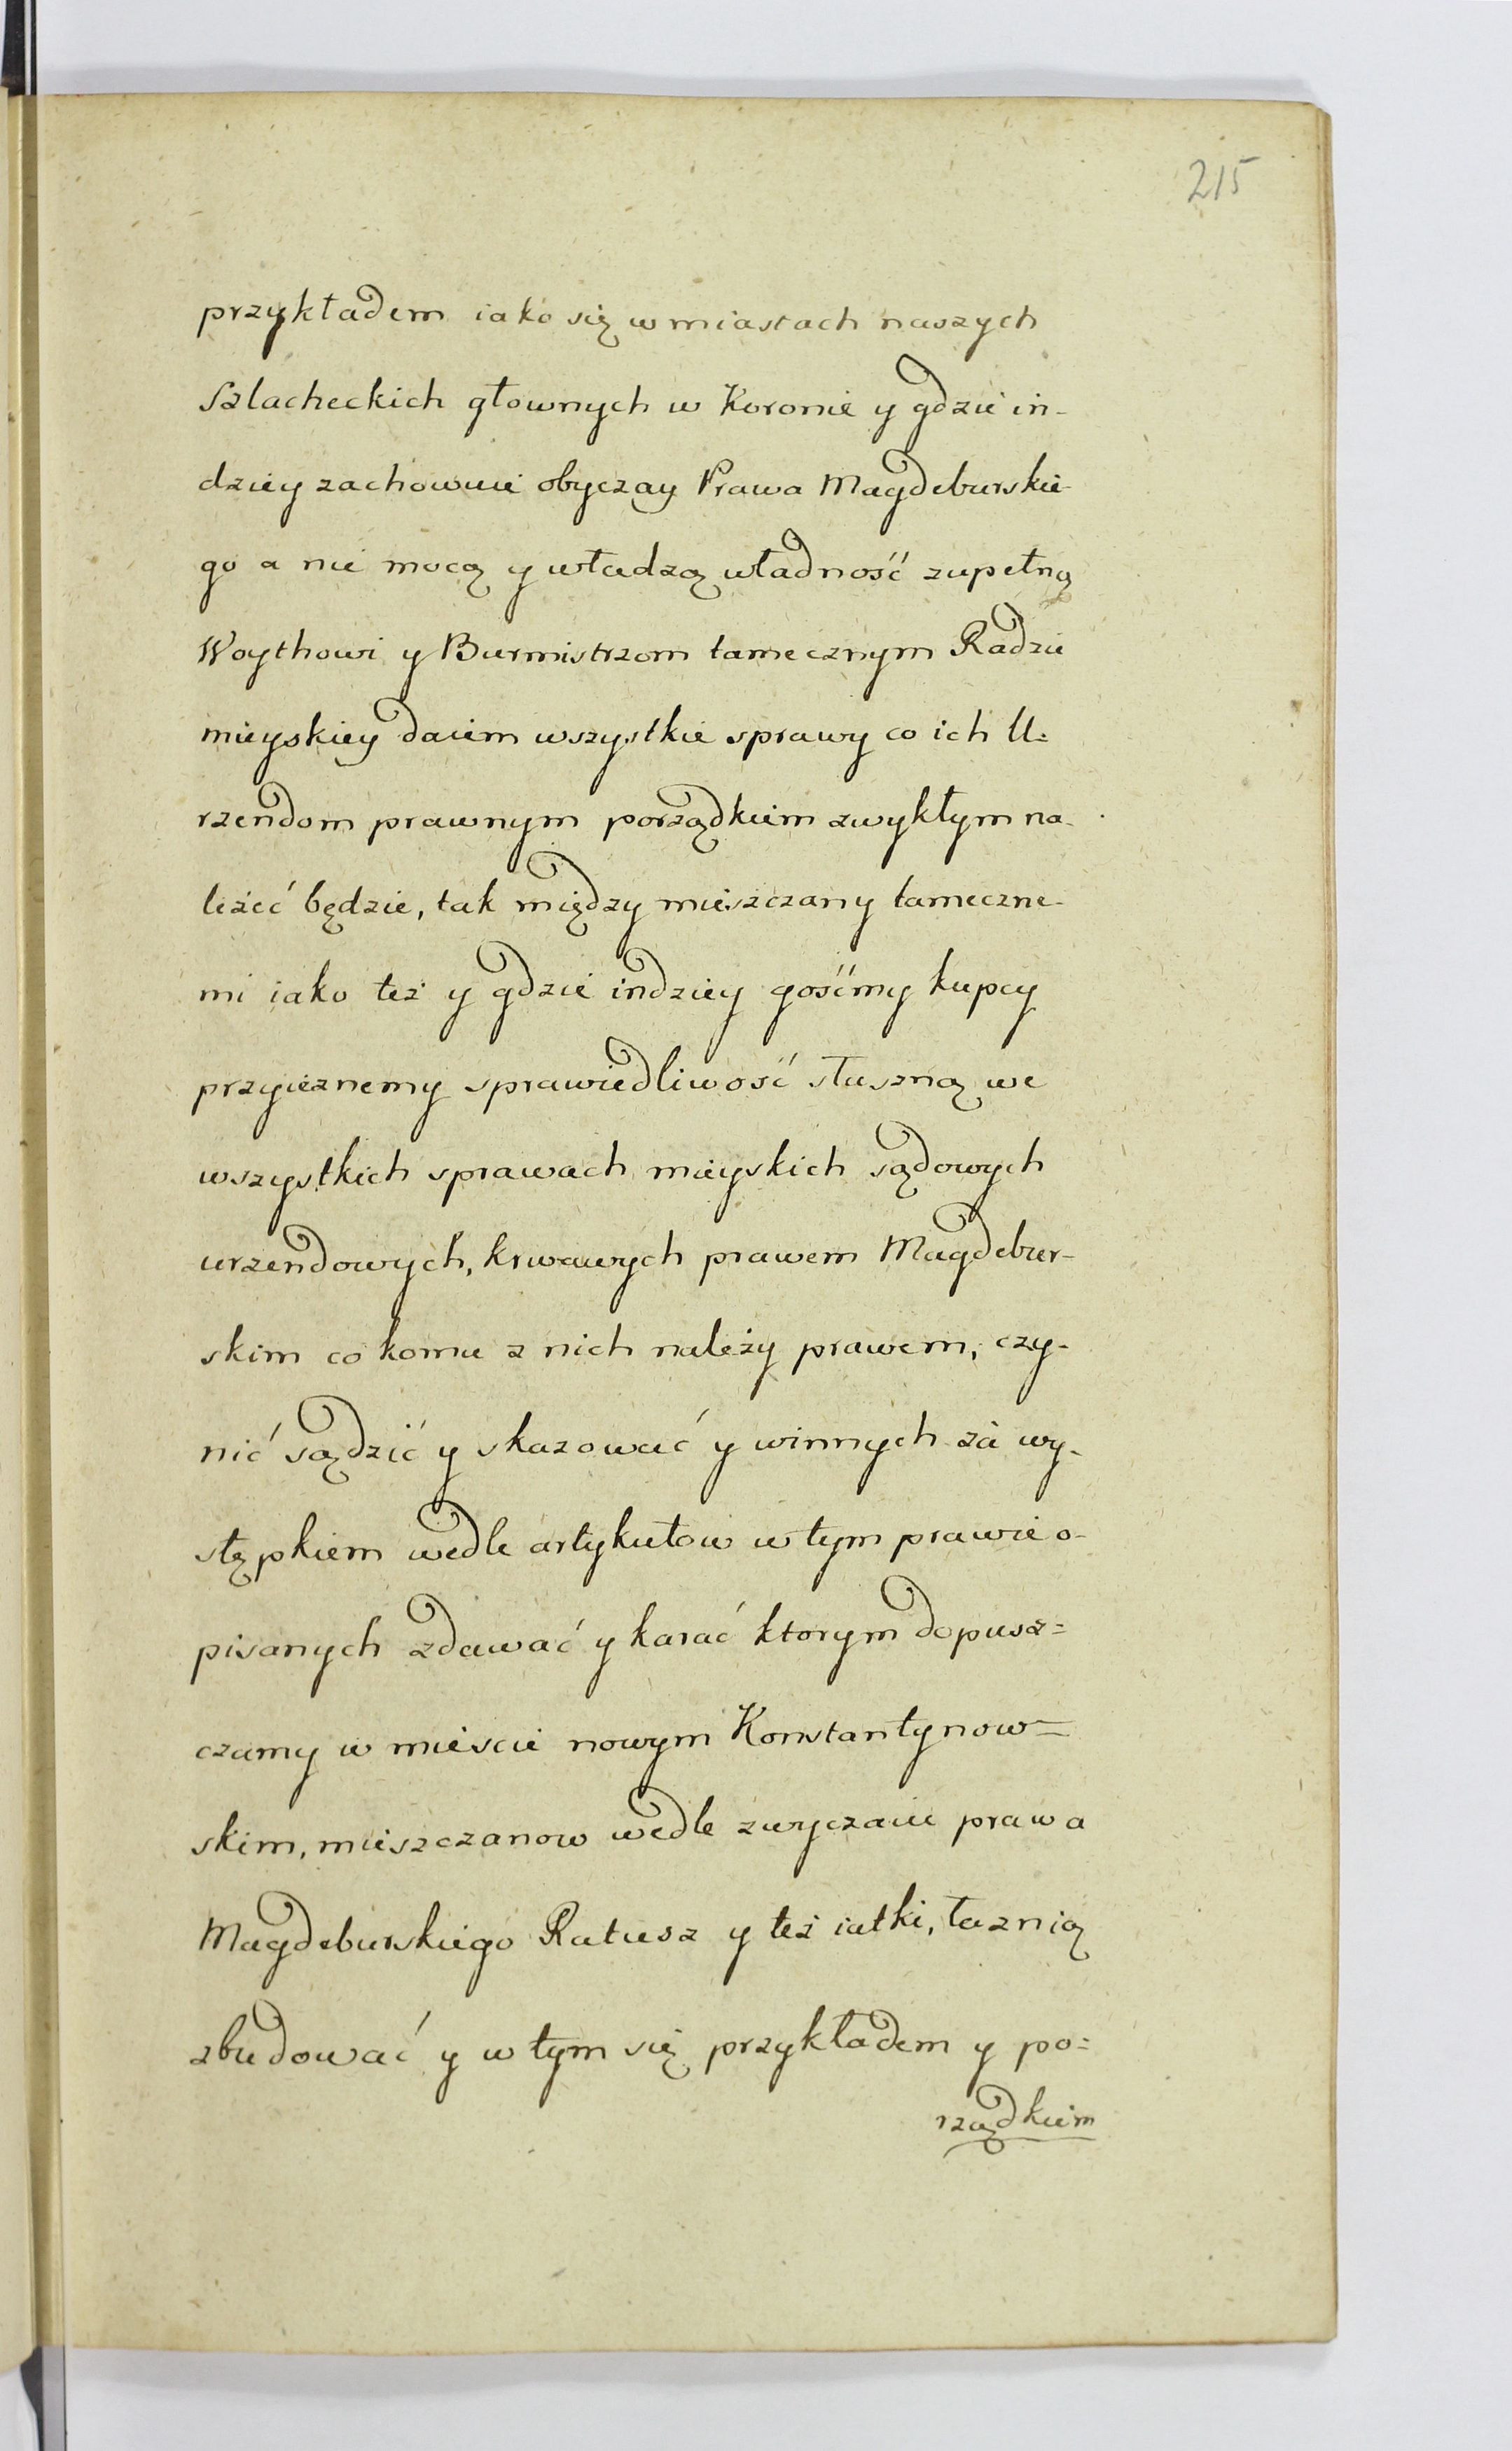 215
przykładem iako się w miastach naszych
Szlacheckich głownych w Koronie y gdzie in-
dziey zachowuie obyczay Prawa Magdeburskie-
go a nie mocą y władzą władność zupełną
Woythowi y Burmistrzom tamecznym Radzie
mieyskiey daiem wszystkie sprawy co ich U=
rzendom prawnym porządkiem zwykłym na-
leżeć będzie, tak między mieszczany tameczne-
mi iako też y gdzie indziey gośćmy kupcy
przyieznemy sprawiedliwość słuszną we
wszystkich sprawach mieyskich sądowych
urzendowych, krwawych prawem Magdebur-
skim co komu z nich należy prawem, czy-
nić sądzić y skazować y winnych za wy-
stępkiem wedle artykułow w tym prawie o-
pisanych zdawać y karać ktorym dopusz=
czamy w mieście nowym Konstantynow=
skim, mieszczanow wedle zwyczaiu prawa
Magdeburskiego Ratusz y też iatki, łaznią
zbudować y w tym się przykładem y po=
rządkiem